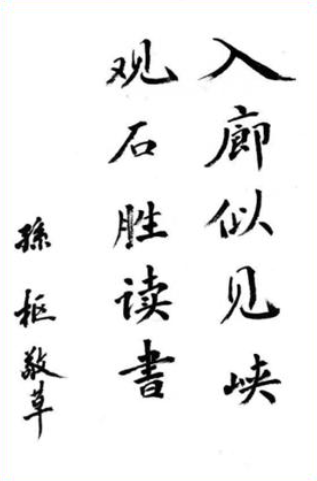 入廊似见峡
观石胜读书
孫枢敬草